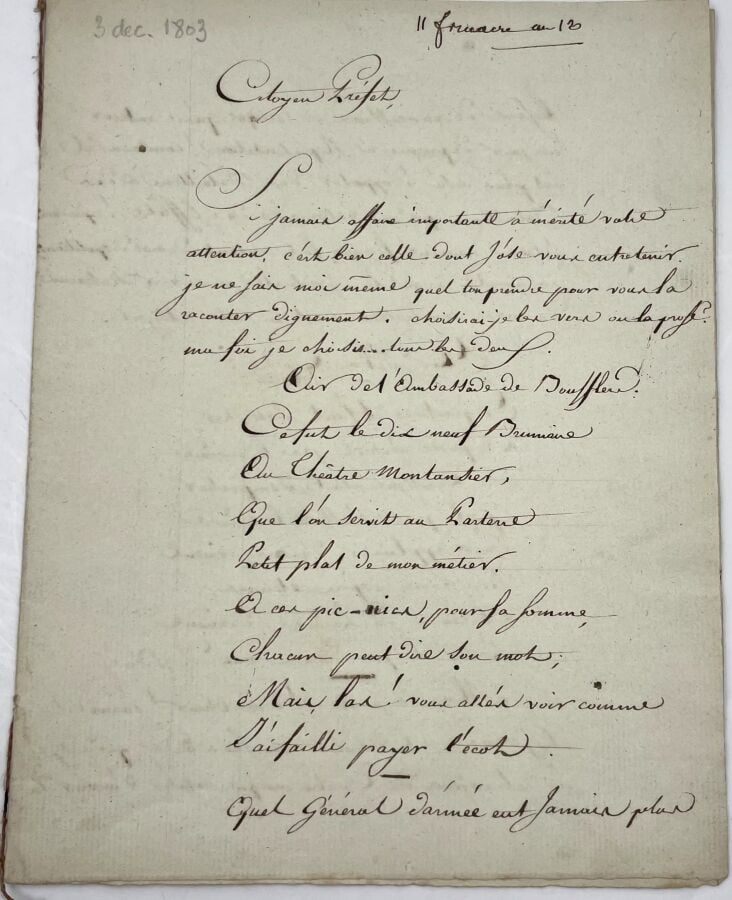 3 dec. 1803
11 frimaire an 12
Citoyen Préfet,
Si jamais affaire importante à mérité votre
attention, c'est bien celle dont J'ôse vous entretenir.
je ne sais moi même quel ton prendre pour vous la
raconter dignement. choisirai-je les vers ou la prose?
ma foi je choisis... tous les deux.
Air de l'Ambassade de Boufflers.
Ce fut le dix neuf Brumaire
Au Théâtre Montansier,
Que l'on servit au Parterre
Petit plat de mon métier.
A ces pic-nics, pour sa somme,
Chacun peut dire son mot;
Mais, las! vous allés voir comme
J'ai failli payer l'écot.
Quel Général d'armée eut Jamais plus